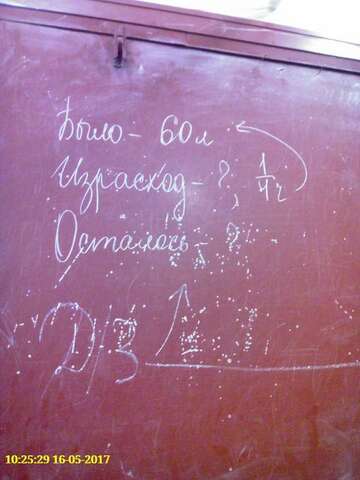 Было - 60л
Израсход - ?, 1/4 ч
Осталось - ?
Д/З
10:25:29 16-05-2017